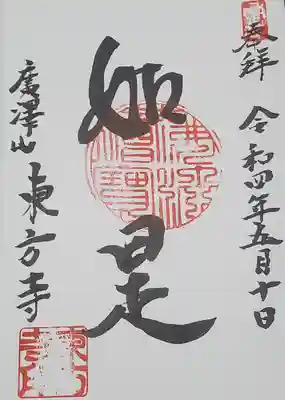 奉拜 令和四年五月十日
如是
廣澤山東方寺